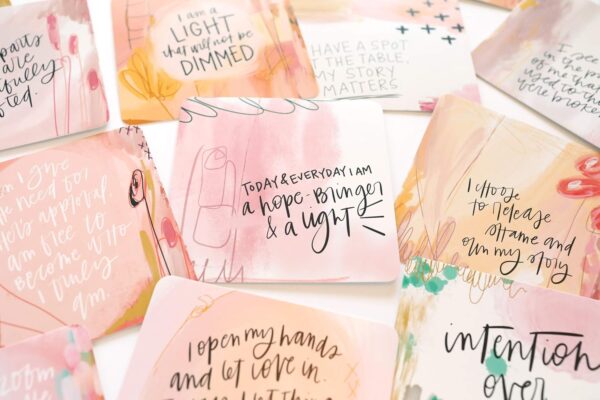 parts
are
I am a
LIGHT
that will not be
DIMMED
HAVE A SPOT
AT THE TABLE.
MY STORY
MATTERS
I see
of me that
used to
were broken
TODAY & EVERYDAY I AM
a hope-Bringer
& a light
need for
approval.
am free to
Become who
I truly
am.
I choose
to release
shame and
own my story
I open my hands
and let love in.
intention
over
room